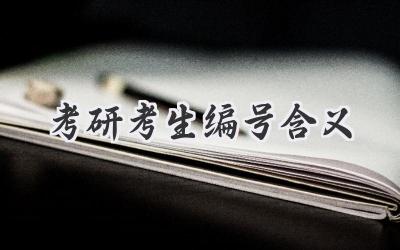 考研考生编号含义